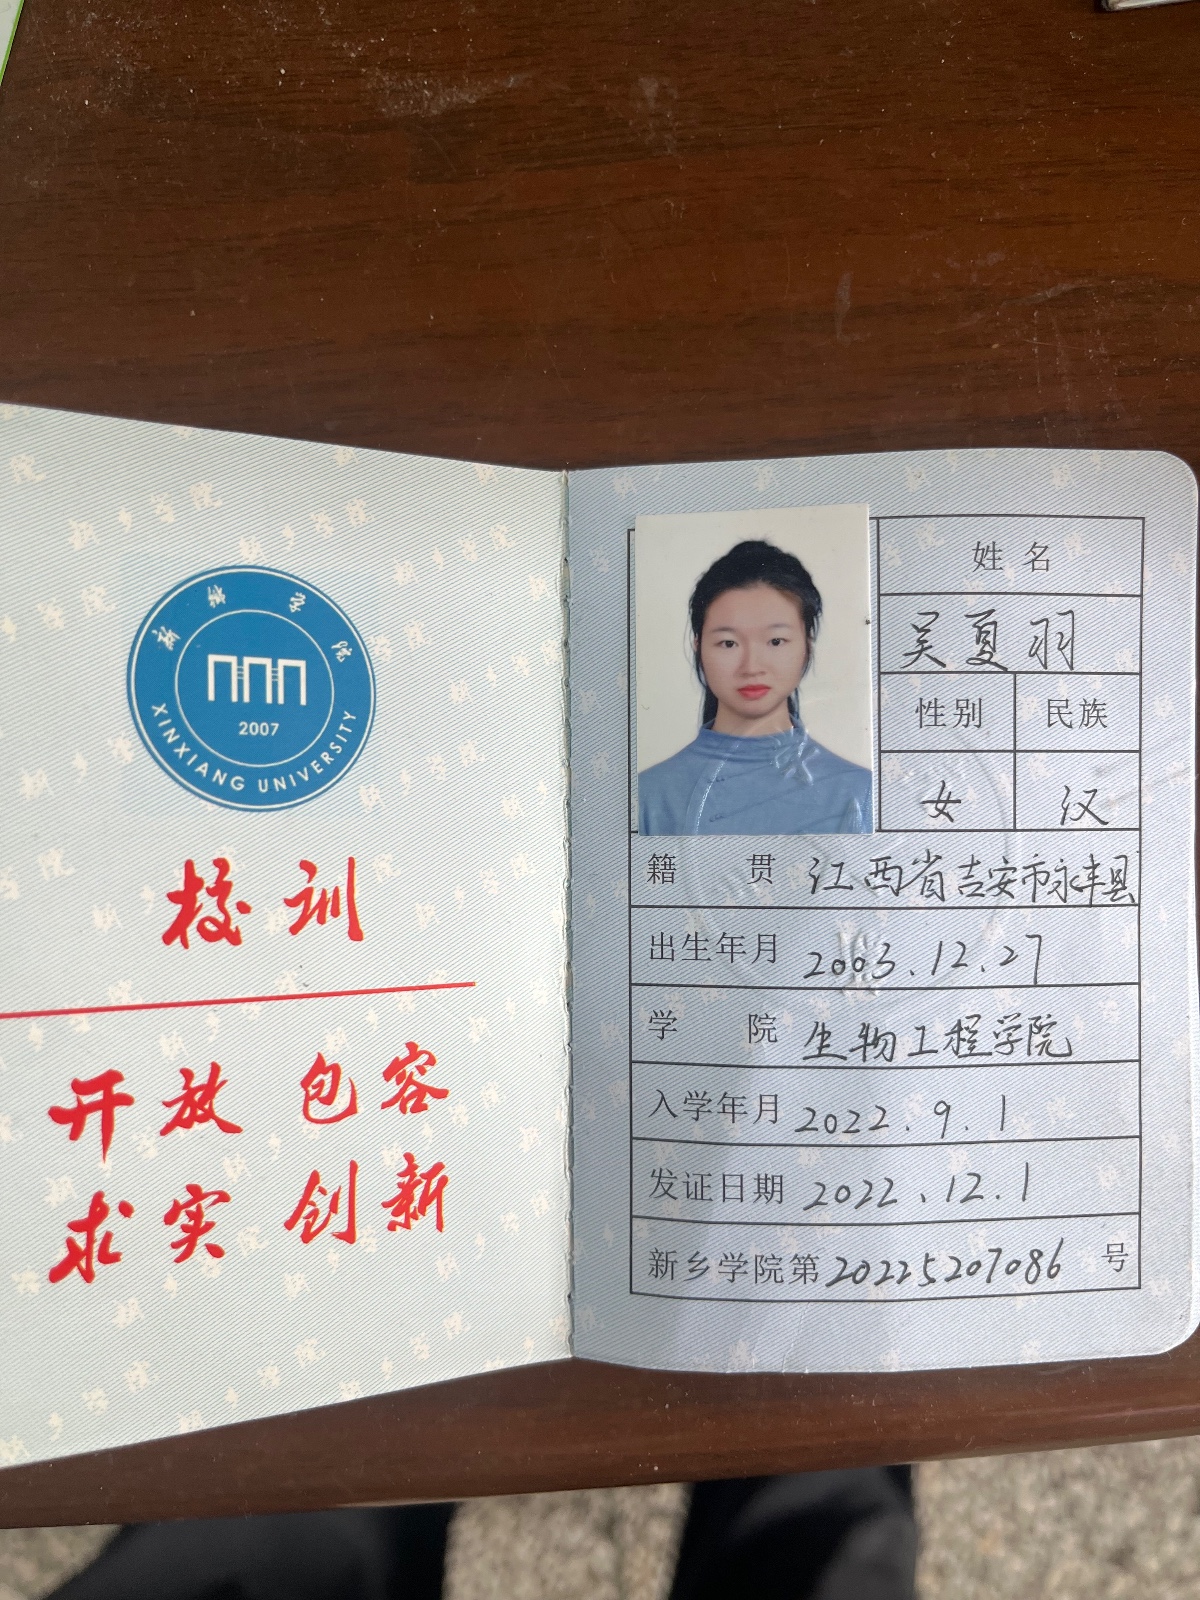 新乡学院
2007
XINXIANG UNIVERSITY
校训
开放 包容
求实 创新
姓名
吴夏羽
性别 民族
女 汉
籍贯 江西省吉安市永丰县
出生年月 2003.12.27
学院 生物工程学院
入学年月 2022.9.1
发证日期 2022.12.1
新乡学院第20225207086号